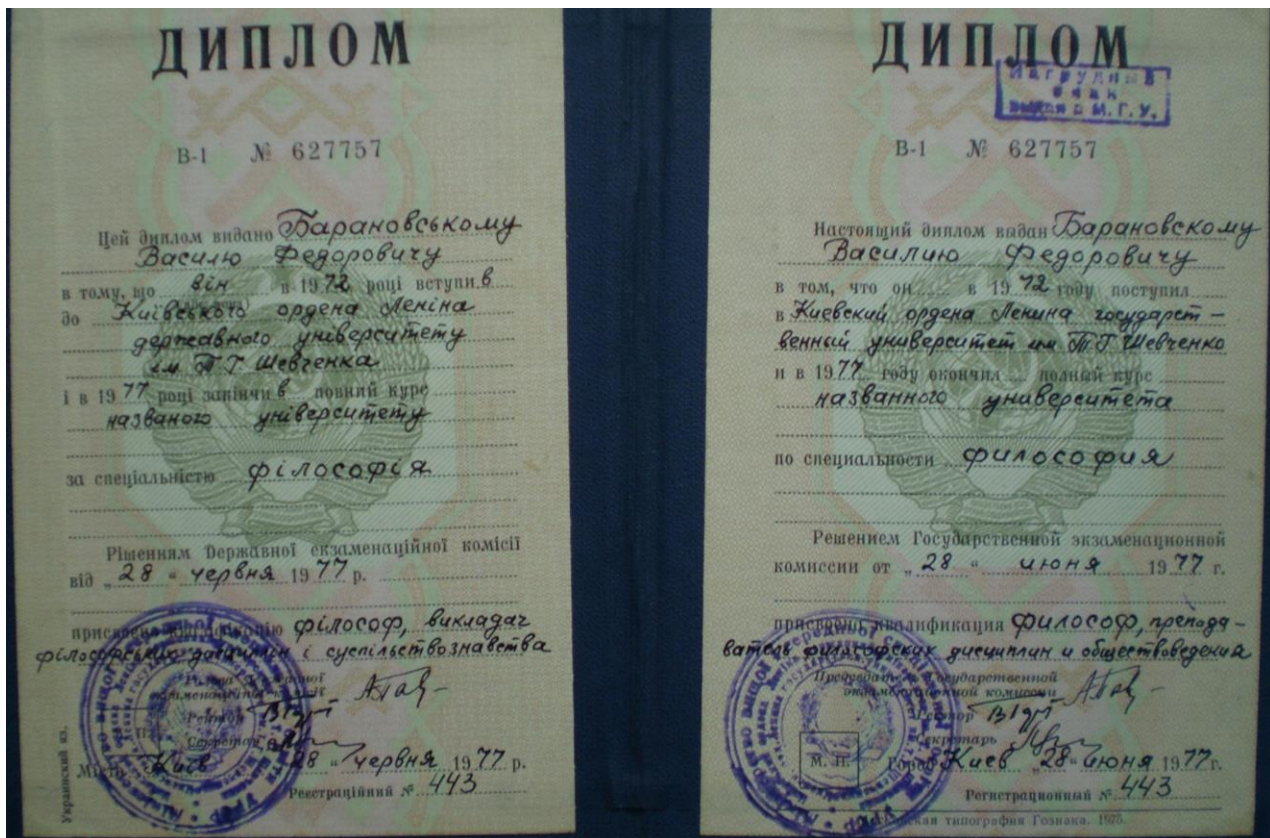 ДИПЛОМ
В-1 № 627757
Цей диплом видано Барановському
Василю Федоровичу
в тому, що він в 1972 році вступив
до Київського ордена Леніна
державного університету
ім. Т Г Шевченка
і в 1977 році закінчив повний курс
названого університету
за спеціальністю філософія
Рішенням Державної екзаменаційної комісії
від „28“ червня 1977 р.
присвоєно кваліфікацію філософ, викладач
філософських дисциплін і суспільствознавства
Голова Державної
екзаменаційної комісії
Ректор
Секретар
Місто Київ 28 “ червня 1977 р.
Реєстраційний № 443
Украинский яз.
ДИПЛОМ
Нагрудный
знак
выдан М.Г.У.
В-1 № 627757
Настоящий диплом выдан Барановскому
Василию Федоровичу
в том, что он в 1972 году поступил
в Киевский ордена Ленина государст-
венный университет им Т Г Шевченко
и в 1977 году окончил полный курс
названного университета
по специальности философия
Решением Государственной экзаменационной
комиссии от „28“ июня 1977 г.
присвоена квалификация философ, препода-
ватель философских дисциплин и обществоведения
Председатель Государственной
экзаменационной комиссии
Ректор
Секретарь
М. П. Город Киев „28“ июня 1977 г.
Регистрационный № 443
Московская типография Гознака. 1975.